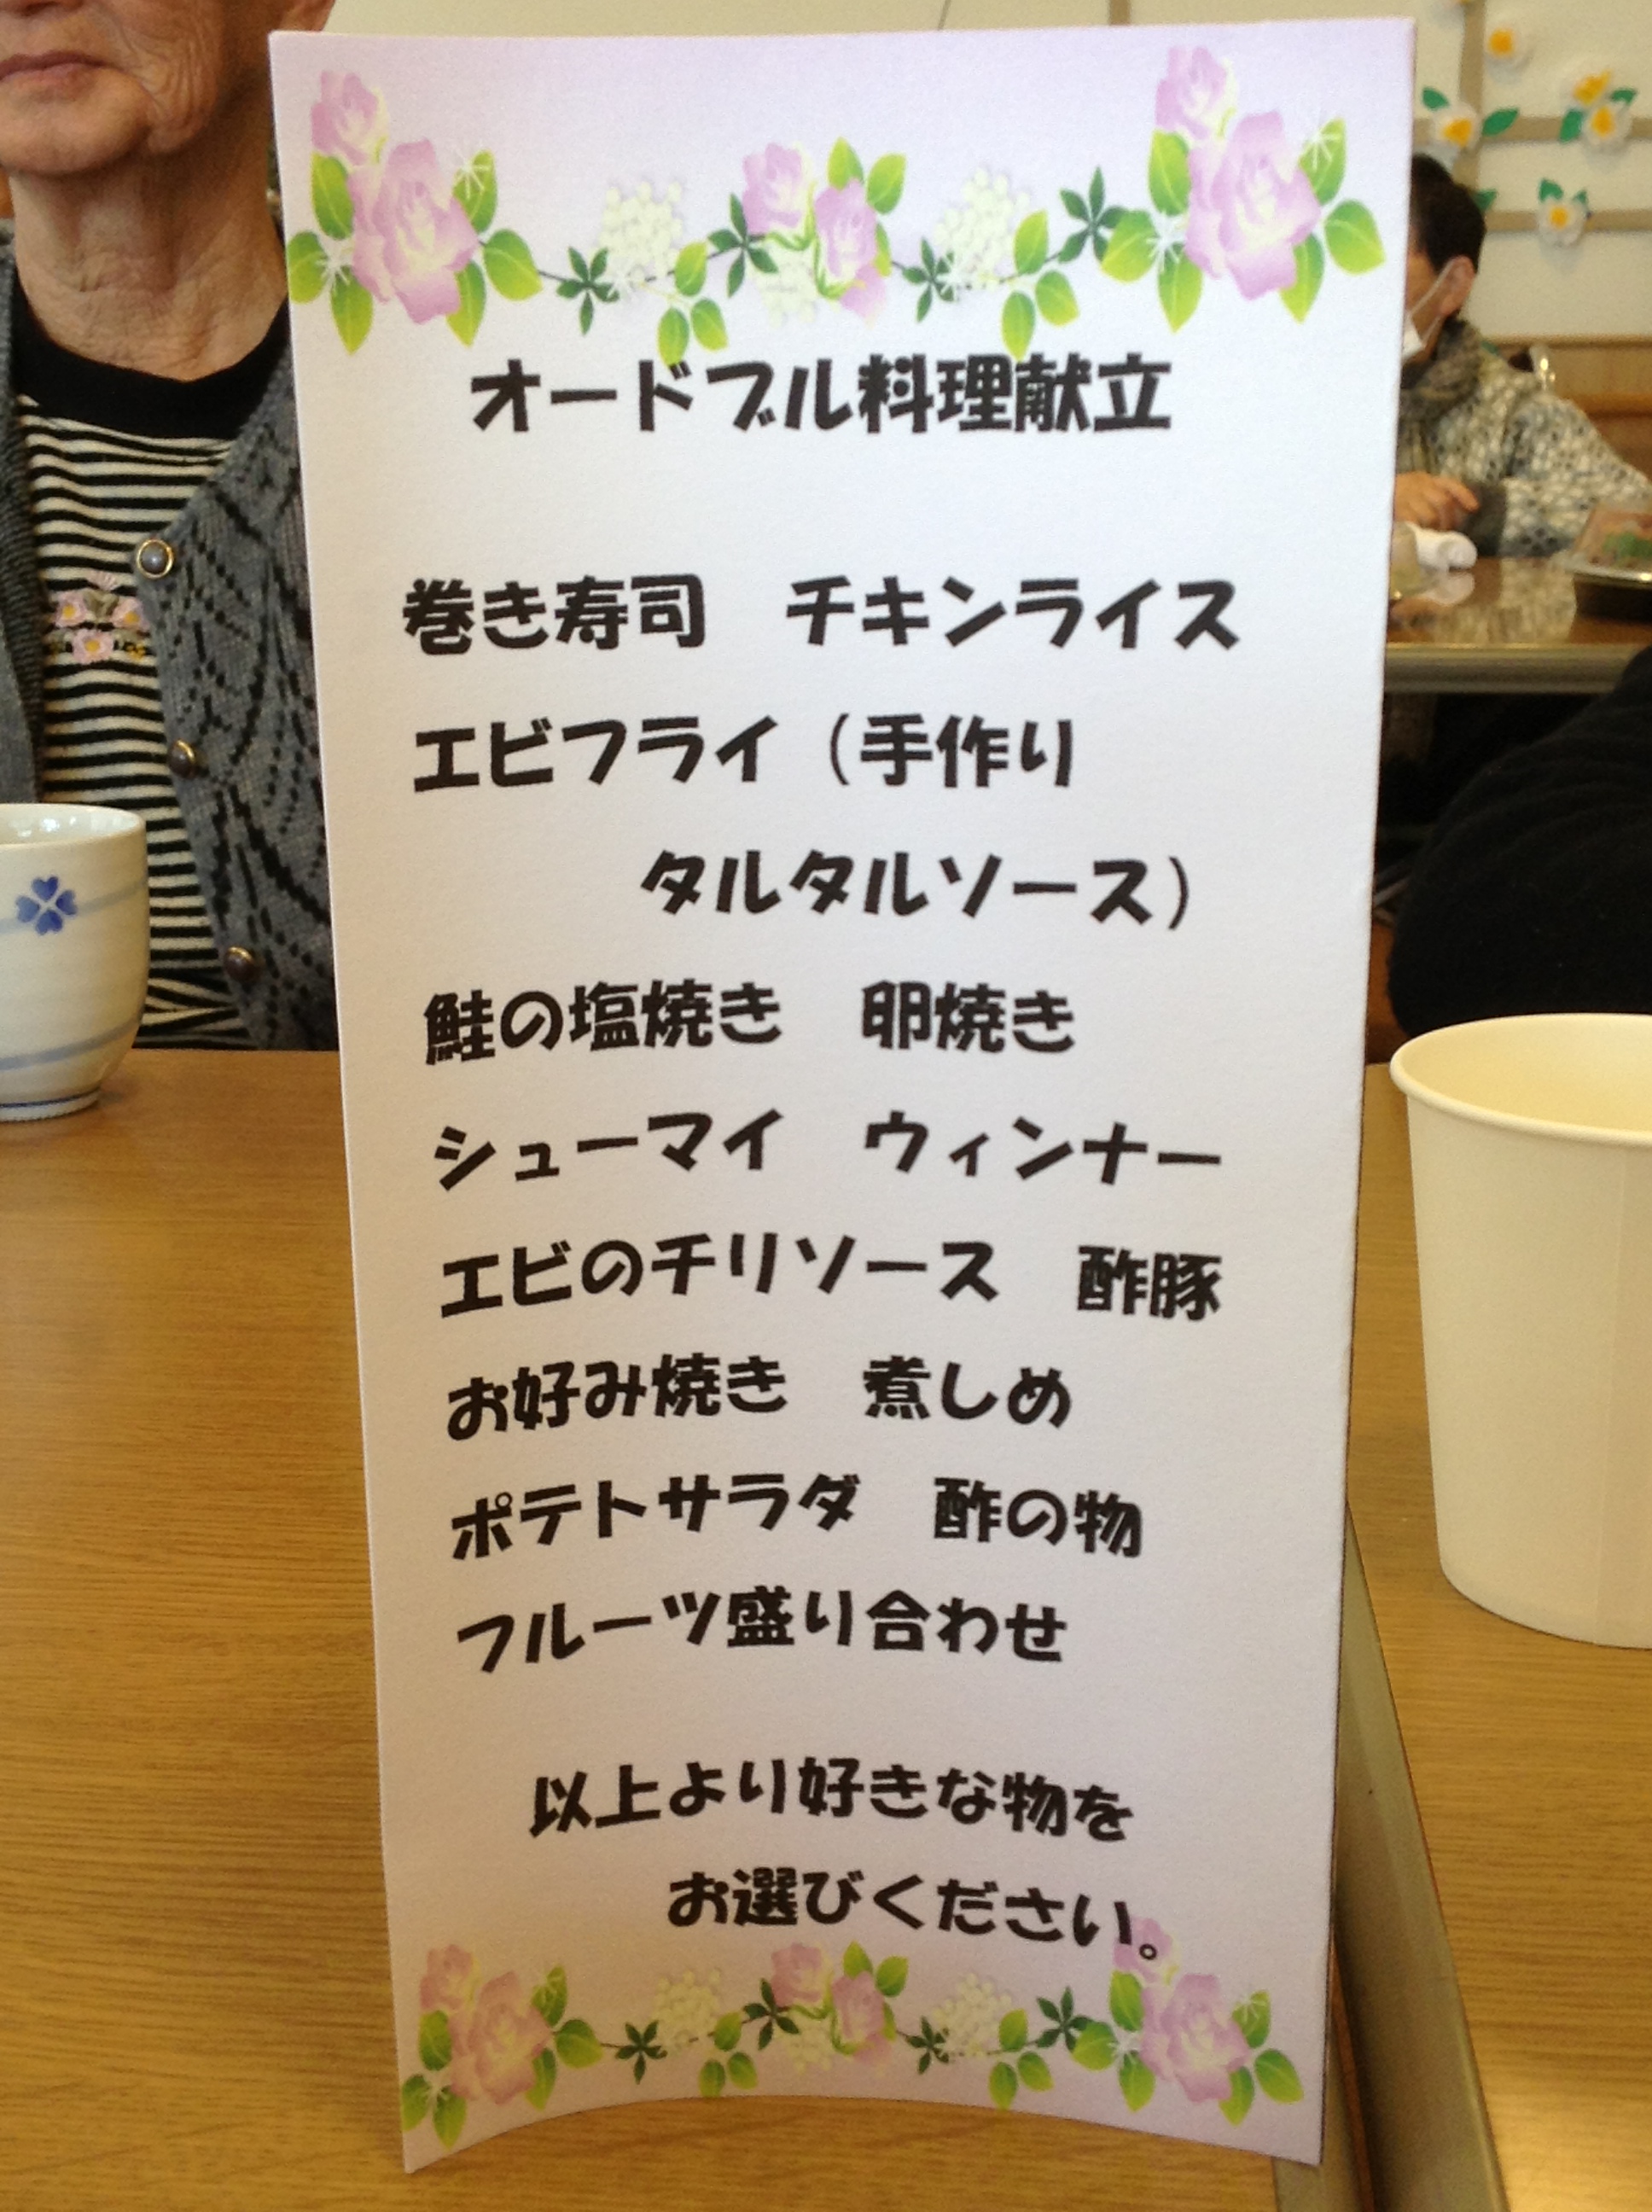 オードブル料理献立
巻き寿司　チキンライス
エビフライ（手作り
タルタルソース）
鮭の塩焼き　卵焼き
シューマイ　ウィンナー
エビのチリソース　酢豚
お好み焼き　煮しめ
ポテトサラダ　酢の物
フルーツ盛り合わせ
以上より好きな物を
お選びください。